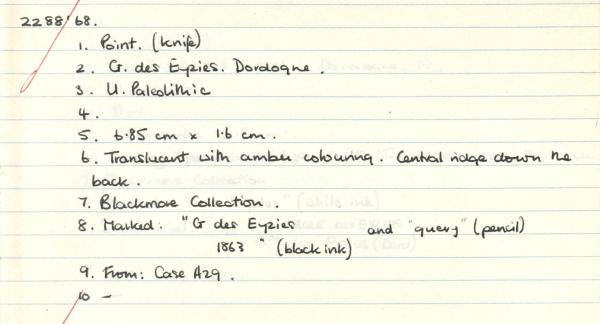 2288/68.
1. Point. (knife)
2. G. des Eyzies. Dordogne.
3. U. Paleolithic
4.
5. 6.85 cm x 1.6 cm.
6. Translucent with amber colouring. Central ridge down the
back.
7. Blackmore Collection.
8. Marked: "G des Eyzies and "query" (pencil)
1863 " (black ink)
9. From: Case A29.
10 –